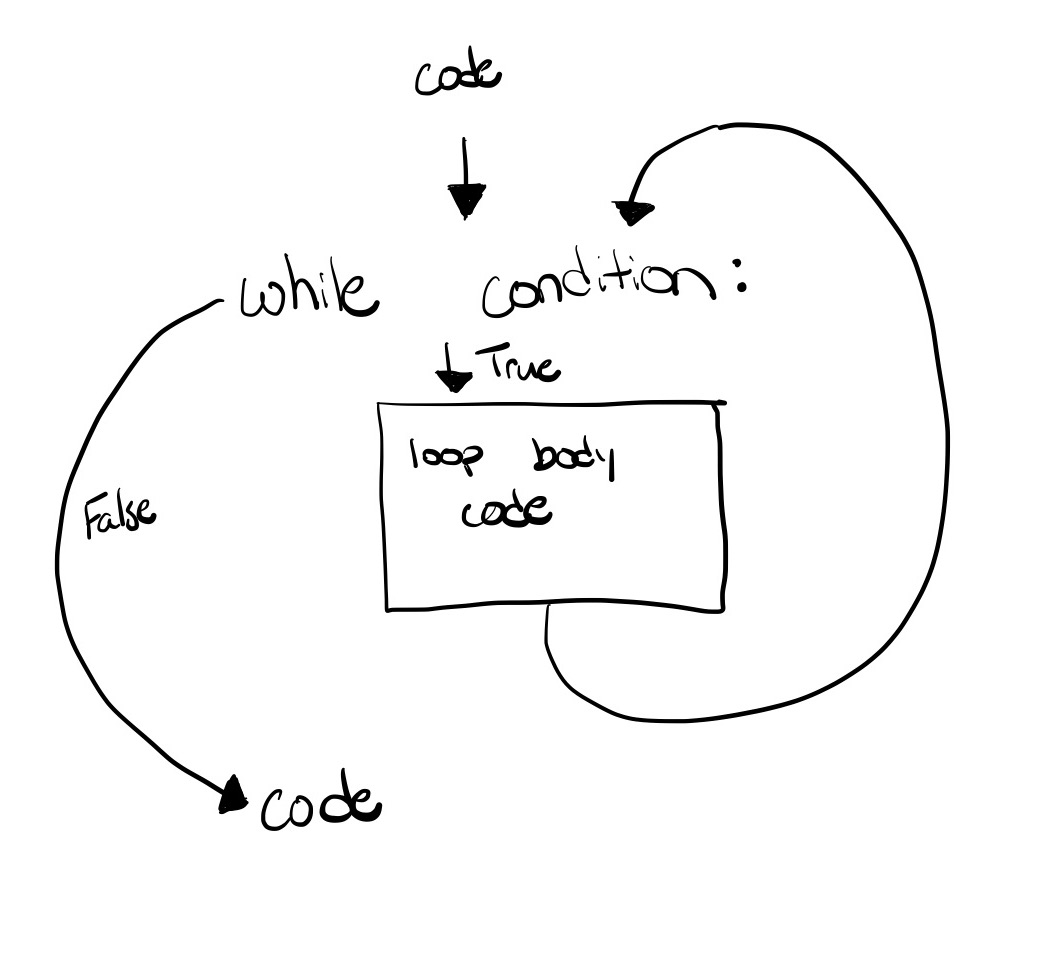 code
while condition:
True
loop body
code
False
code